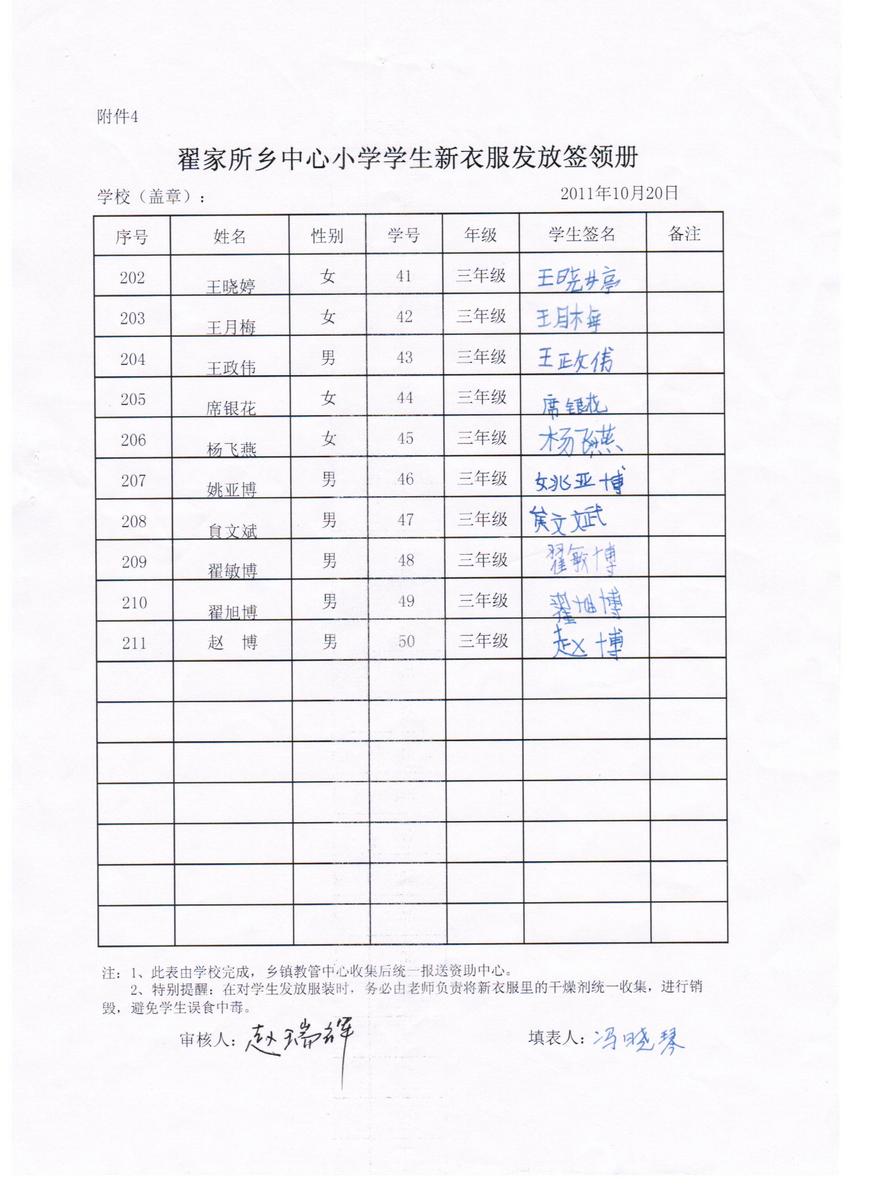 附件4
翟家所乡中心小学学生新衣服发放签领册
学校（盖章）： 2011年10月20日
序号 姓名 性别 学号 年级 学生签名 备注
202 王晓婷 女 41 三年级 王晓婷
203 王月梅 女 42 三年级 王月梅
204 王政伟 男 43 三年级 王政伟
205 席银花 女 44 三年级 席银花
206 杨飞燕 女 45 三年级 杨飞燕
207 姚亚博 男 46 三年级 姚亚博
208 負文斌 男 47 三年级 文斌
209 翟敏博 男 48 三年级 翟敏博
210 翟旭博 男 49 三年级 翟旭博
211 赵 博 男 50 三年级 赵博
注：1、此表由学校完成，乡镇教管中心收集后统一报送资助中心。
2、特别提醒：在对学生发放服装时，务必由老师负责将新衣服里的干燥剂统一收集，进行销
毁，避免学生误食中毒。
审核人：赵瑞辉 填表人：冯晓琴